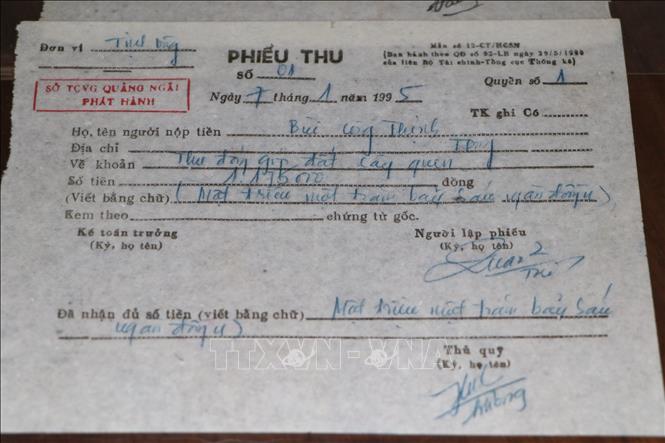 Đơn vị
PHIẾU THU
Mẫu số 12-CT/HCSN
(Ban hành theo QĐ số 92-LB ngày 29/5/1980
của liên Bộ Tài chính-Tổng cục Thống kê)
Số 01
Quyển số 1
SỞ TCVG QUẢNG NGÃI
PHÁT HÀNH
Ngày 7 tháng 1 năm 1995
TK ghi Có
Họ, tên người nộp tiền Bùi Công Thịnh
Địa chỉ
Về khoản Thu đóng góp đất cây quen
Số tiền đồng
(Viết bằng chữ) (Một triệu một trăm bảy sáu ngàn đồng)
Kem theo chứng từ gốc.
Kế toán trưởng
(Ký, họ tên)
Người lập phiếu
(Ký, họ tên)
Đã nhận đủ số tiền (viết bằng chữ) Một triệu một trăm bảy sáu
ngàn đồng)
TTXVN-VNA
Thủ quỹ
(Ký, họ tên)